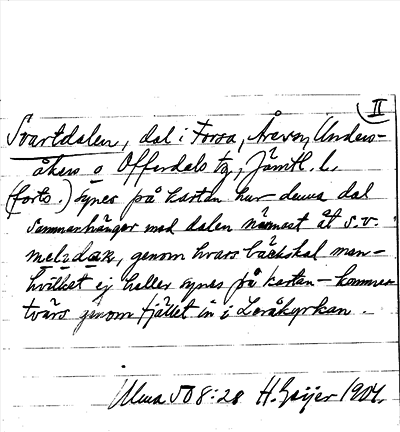 II
Svartdalen, dal i Forsa, Åreven, Unders-
åkers o Offerdals tg, Jämtl. L.
(forts.) synes på kartan hur denna dal
sammanhänger med dalen närmast åt s.v.
genom hvars bäckskal man-
hvilket ej heller synes på kartan - kommer
tvärs genom fjället in i Loråkyrkan.
Ulma 508:28 H. Geijer 1904.